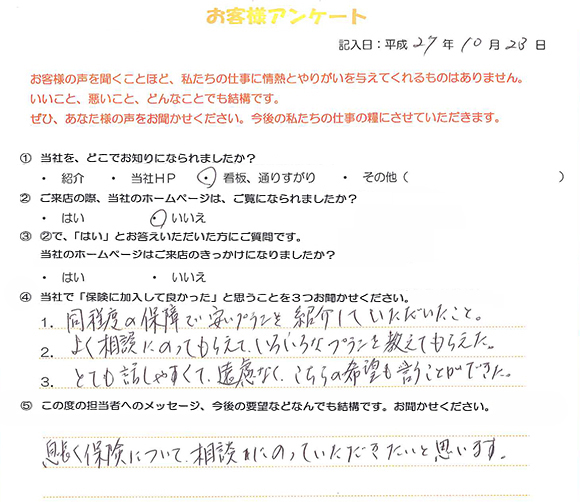 お客様アンケート
記入日：平成 27 年 10 月 23 日
お客様の声を聞くことほど、私たちの仕事に情熱とやりがいを与えてくれるものはありません。
いいこと、悪いこと、どんなことでも結構です。
ぜひ、あなた様の声をお聞かせください。今後の私たちの仕事の糧にさせていただきます。
① 当社を、どこでお知りになられましたか？
・ 紹介 ・ 当社HP ・ 看板、通りすがり ・ その他（ ）
② ご来店の際、当社のホームページは、ご覧になられましたか？
・ はい ・ いいえ
③ ②で、「はい」とお答えいただいた方にご質問です。
当社のホームページはご来店のきっかけになりましたか？
・ はい ・ いいえ
④ 当社で「保険に加入して良かった」と思うことを３つお聞かせください。
1. 同程度の保障で安いプランを紹介していただいたこと。
2. よく相談にのってもらえて、いろいろなプランを教えてもらえた。
3. とても話しやすくて、遠慮なく、こちらの希望も言うことができた。
⑤ この度の担当者へのメッセージ、今後の要望などなんでも結構です。お聞かせください。
息長く保険について、相談にのっていただきたいと思います。